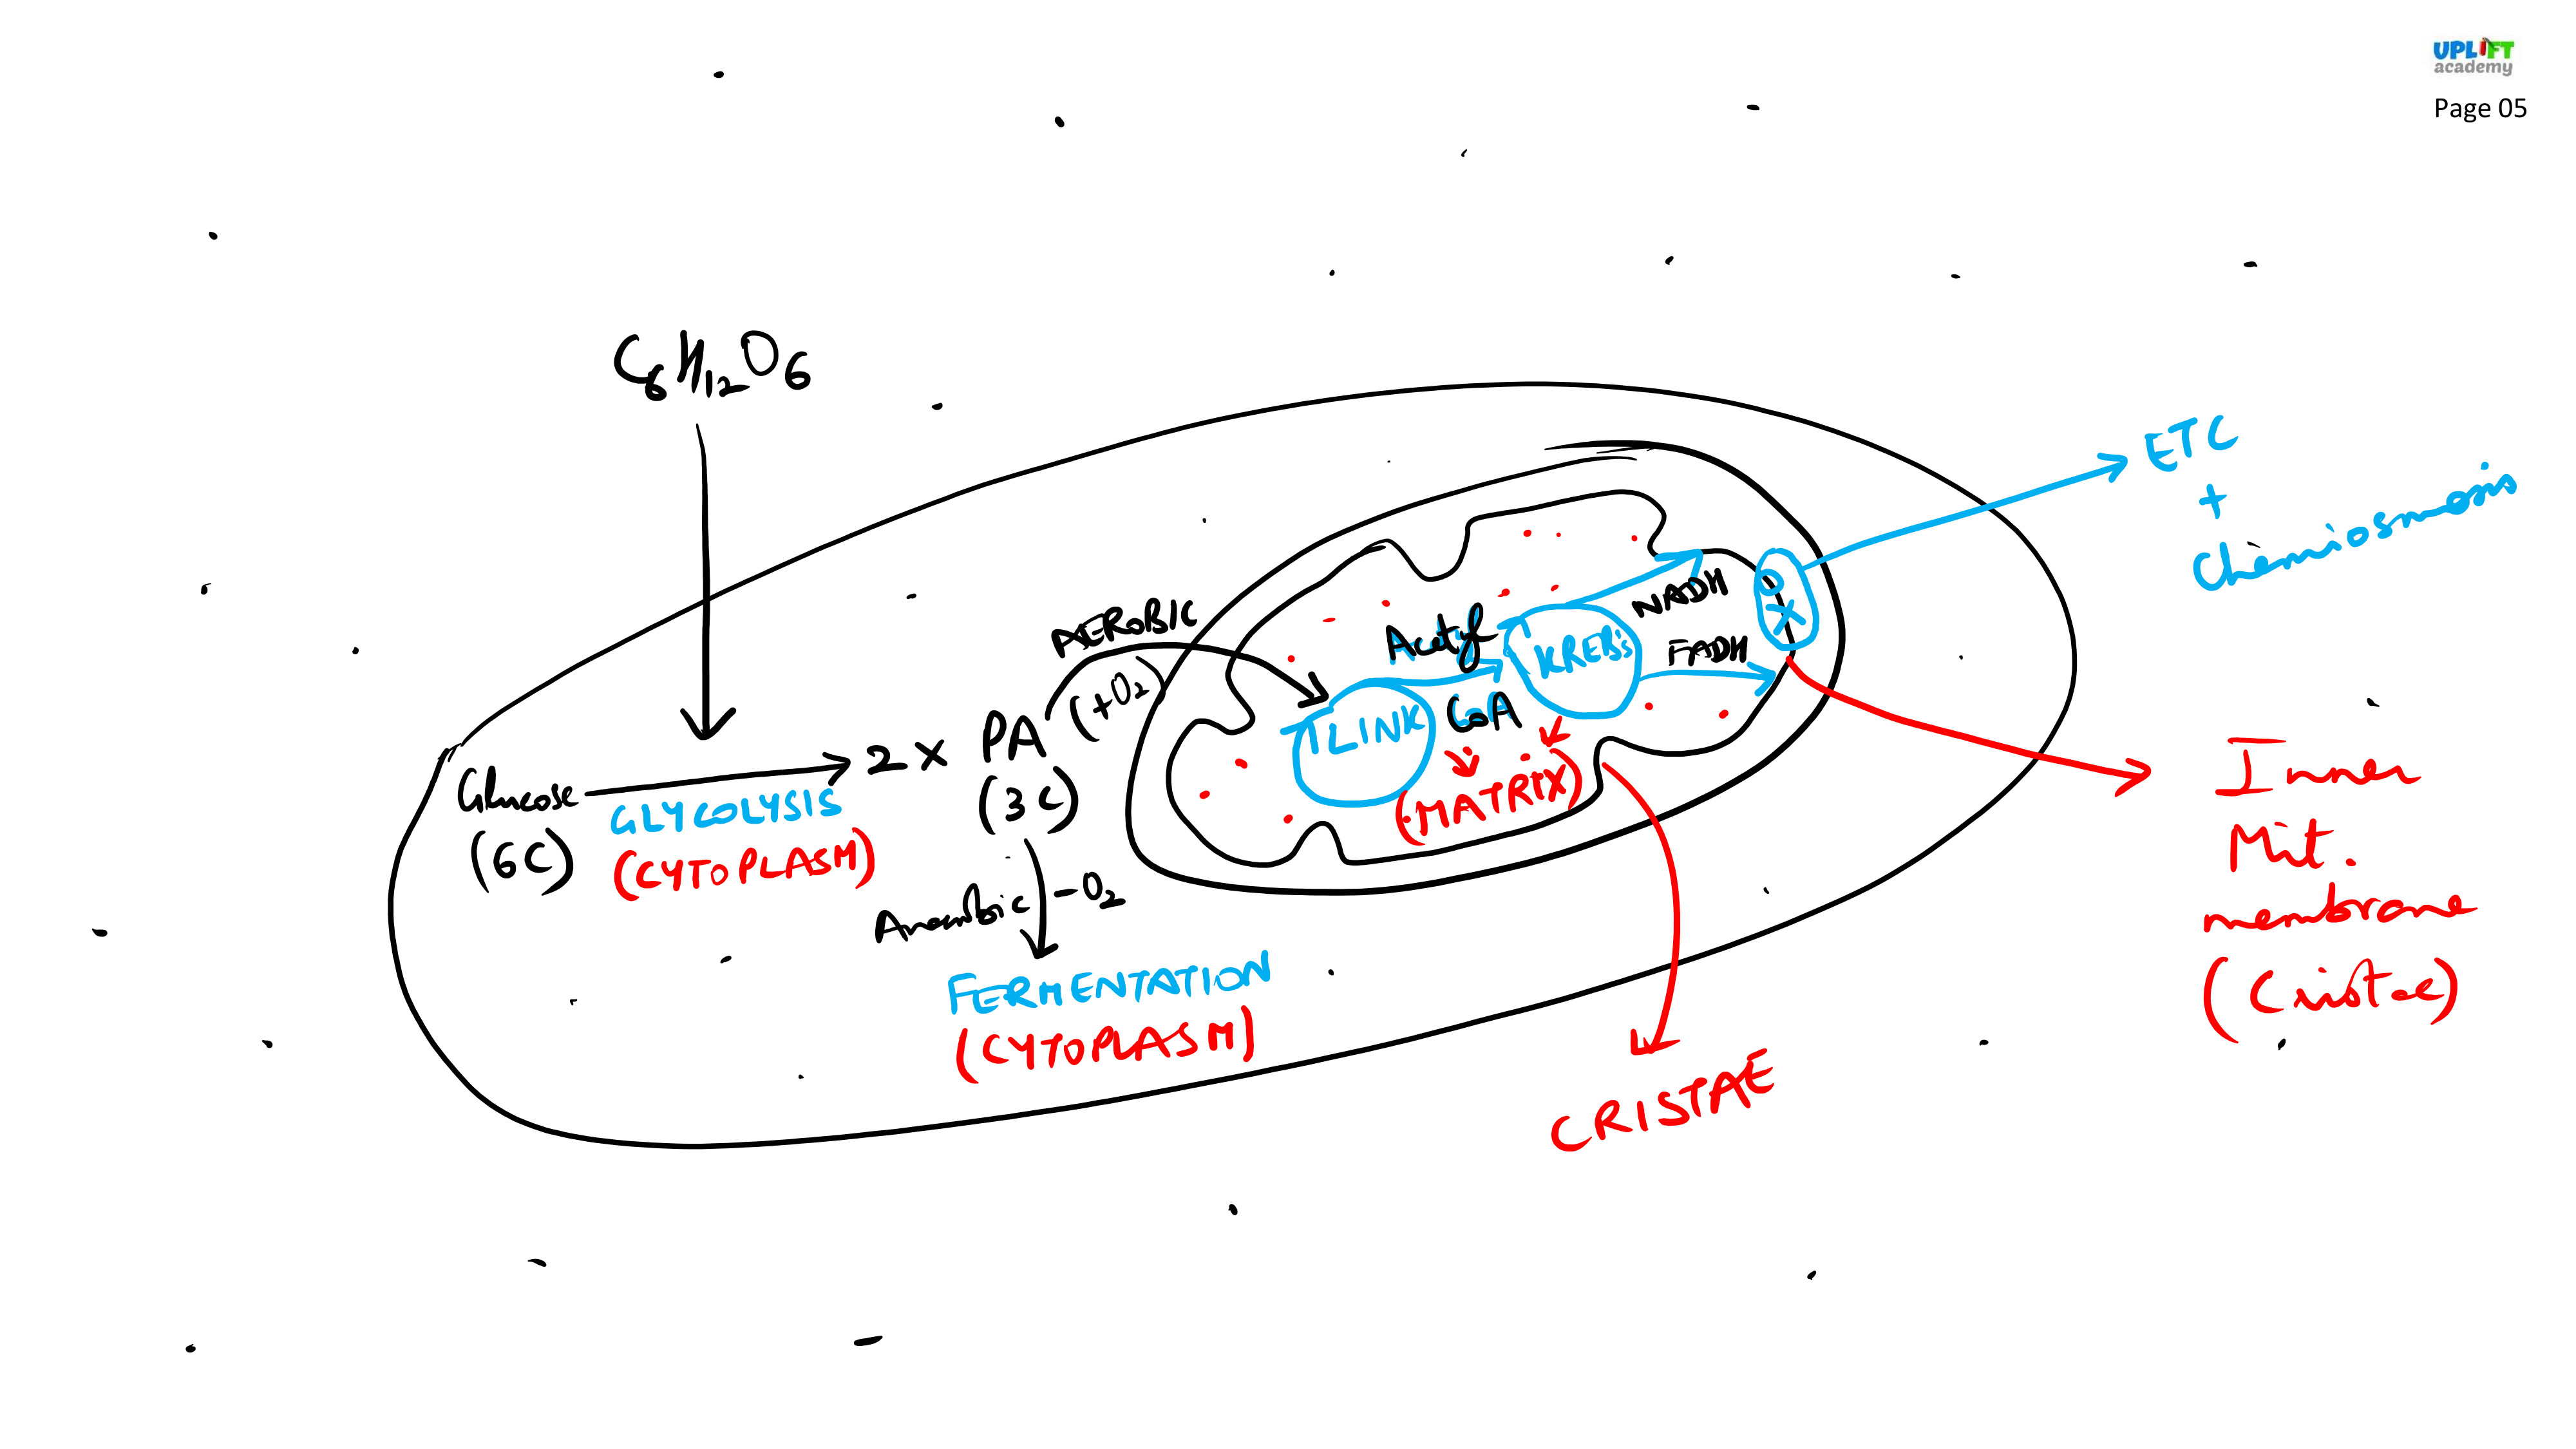 UPLIFT
academy
Page 05
C6H12O6
Glucose
(6C)
GLYCOLYSIS
(CYTOPLASM)
2 x PA
(3C)
AEROBIC
(+O2)
Anaerobic
-O2
FERMENTATION
(CYTOPLASM)
LINK
Acetyl
CoA
KREB's
(MATRIX)
NADH
FADH
ETC
+
Chemiosmosis
Inner
Mit.
membrane
(Cristae)
CRISTAE